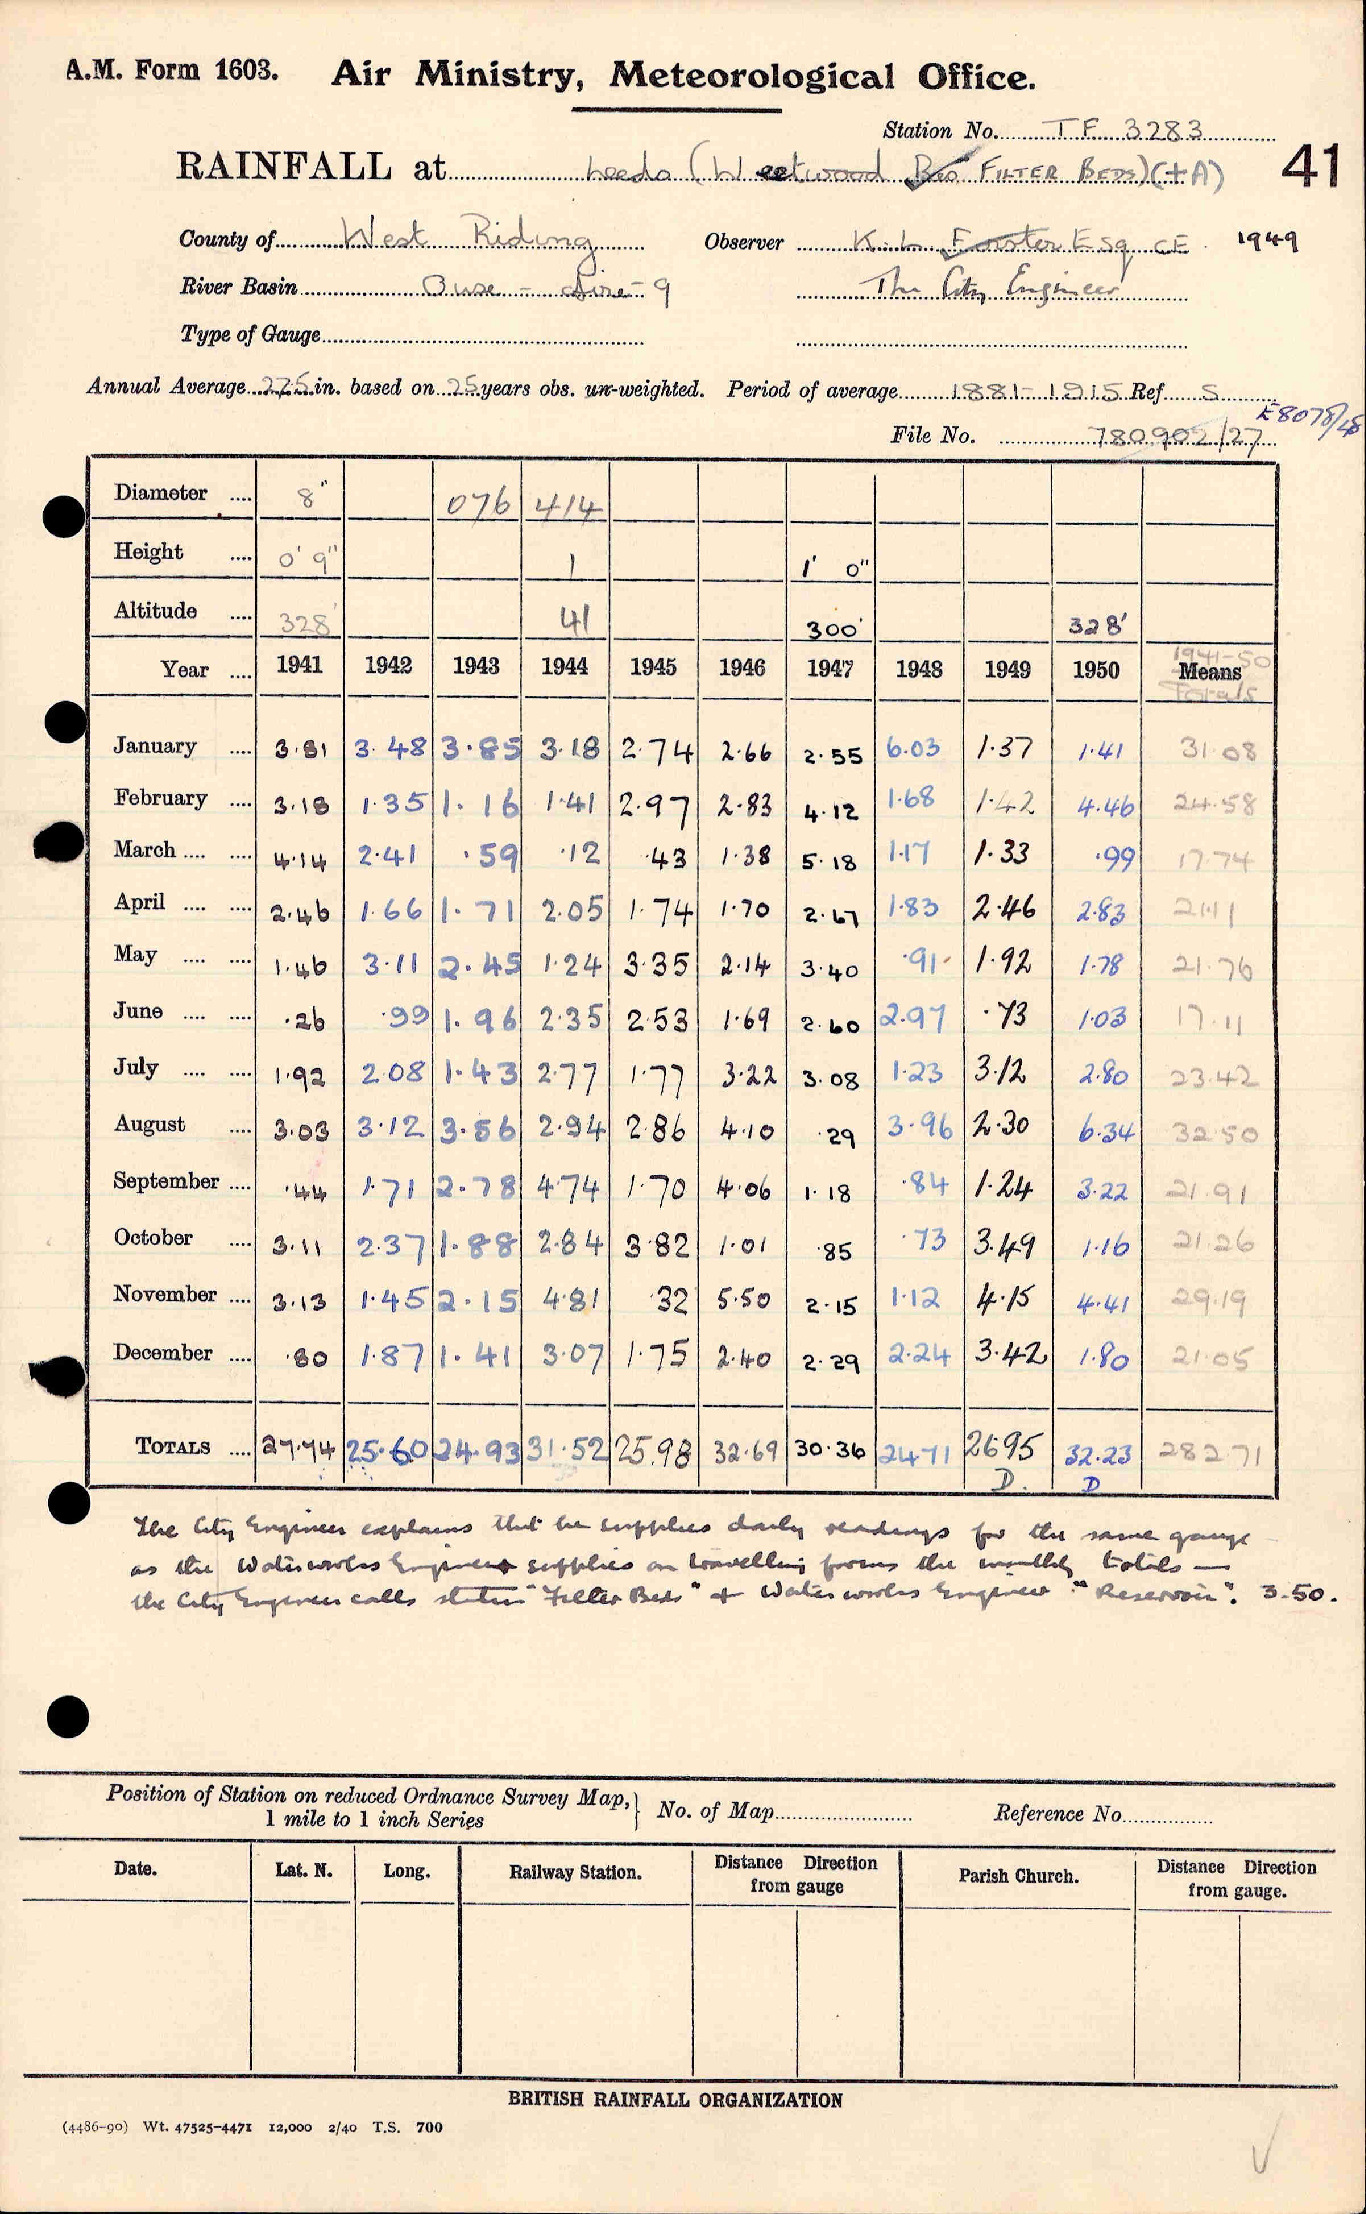 A.M. Form 1603. Air Ministry, Meteorological Office.
Station No. TF 3283
RAINFALL at Leeds (Weetwood FILTER BEDS) (+A) 41
County of West Riding Observer K. L. Forster Esq CE 1949
River Basin Ouse - Aire - 9 The City Engineer
Type of Gauge
Annual Average 27.5 in. based on 25 years obs. un-weighted. Period of average 1881-1915 Ref S
E8078/48
File No. 780902/27
Diameter .... 8" 076 414
Height .... 0' 9" 1 1' 0"
Altitude .... 328' 41 300' 328'
Year .... 1941 1942 1943 1944 1945 1946 1947 1948 1949 1950 1941-50 Means Totals
January .... 3.81 3.48 3.85 3.18 2.74 2.66 2.55 6.03 1.37 1.41 31.08
February .... 3.18 1.35 1.16 1.41 2.97 2.83 4.12 1.68 1.42 4.46 24.58
March .... .... 4.14 2.41 .59 .12 .43 1.38 5.18 1.17 1.33 .99 17.74
April .... .... 2.46 1.66 1.71 2.05 1.74 1.70 2.67 1.83 2.46 2.83 21.11
May .... .... 1.46 3.11 2.45 1.24 3.35 2.14 3.40 .91 1.92 1.78 21.76
June .... .... .26 .99 1.96 2.35 2.53 1.69 2.60 2.97 .73 1.03 17.11
July .... .... 1.92 2.08 1.43 2.77 1.77 3.22 3.08 1.23 3.12 2.80 23.42
August .... 3.03 3.12 3.56 2.94 2.86 4.10 .29 3.96 2.30 6.34 32.50
September .... .44 1.71 2.78 4.74 1.70 4.06 1.18 .84 1.24 3.22 21.91
October .... 3.11 2.37 1.88 2.84 3.82 1.01 .85 .73 3.49 1.16 21.26
November .... 3.13 1.45 2.15 4.81 .32 5.50 2.15 1.12 4.15 4.41 29.19
December .... .80 1.87 1.41 3.07 1.75 2.40 2.29 2.24 3.42 1.80 21.05
TOTALS .... 27.74 25.60 24.93 31.52 25.98 32.69 30.36 24.71 26.95 32.23 282.71
D. D
The City Engineer explains that he supplies daily readings for the same gauge
as the Waterworks Engineer supplies on travelling forms the monthly totals —
the City Engineer calls station "Filter Beds" + Waterworks Engineer "Reservoir". 3.50.
Position of Station on reduced Ordnance Survey Map, 1 mile to 1 inch Series } No. of Map Reference No.
Date. Lat. N. Long. Railway Station. Distance Direction from gauge Parish Church. Distance Direction from gauge.
BRITISH RAINFALL ORGANIZATION
(4486-90) Wt. 47525-4471 12,000 2/40 T.S. 700